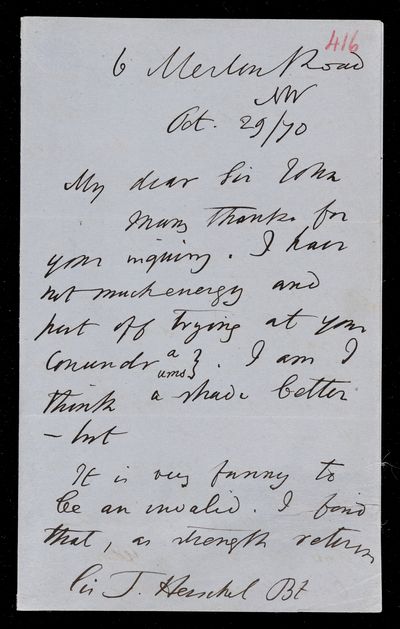 416
6 Merton Road
NW
Oct. 29/70
My dear Sir John
Many thanks for
your inquiry. I have
not much energy and
put off trying at your
Conundr a }
ums }. I am I
think a shade better
- but
It is very funny to
be an invalid. I find
that, as strength returns
Sir J. Herschel Bt